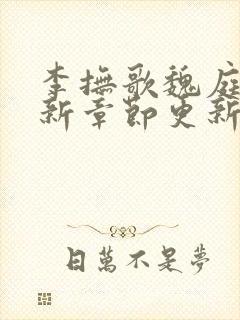 李撫歌魏庭
新章節更新
日萬不是夢